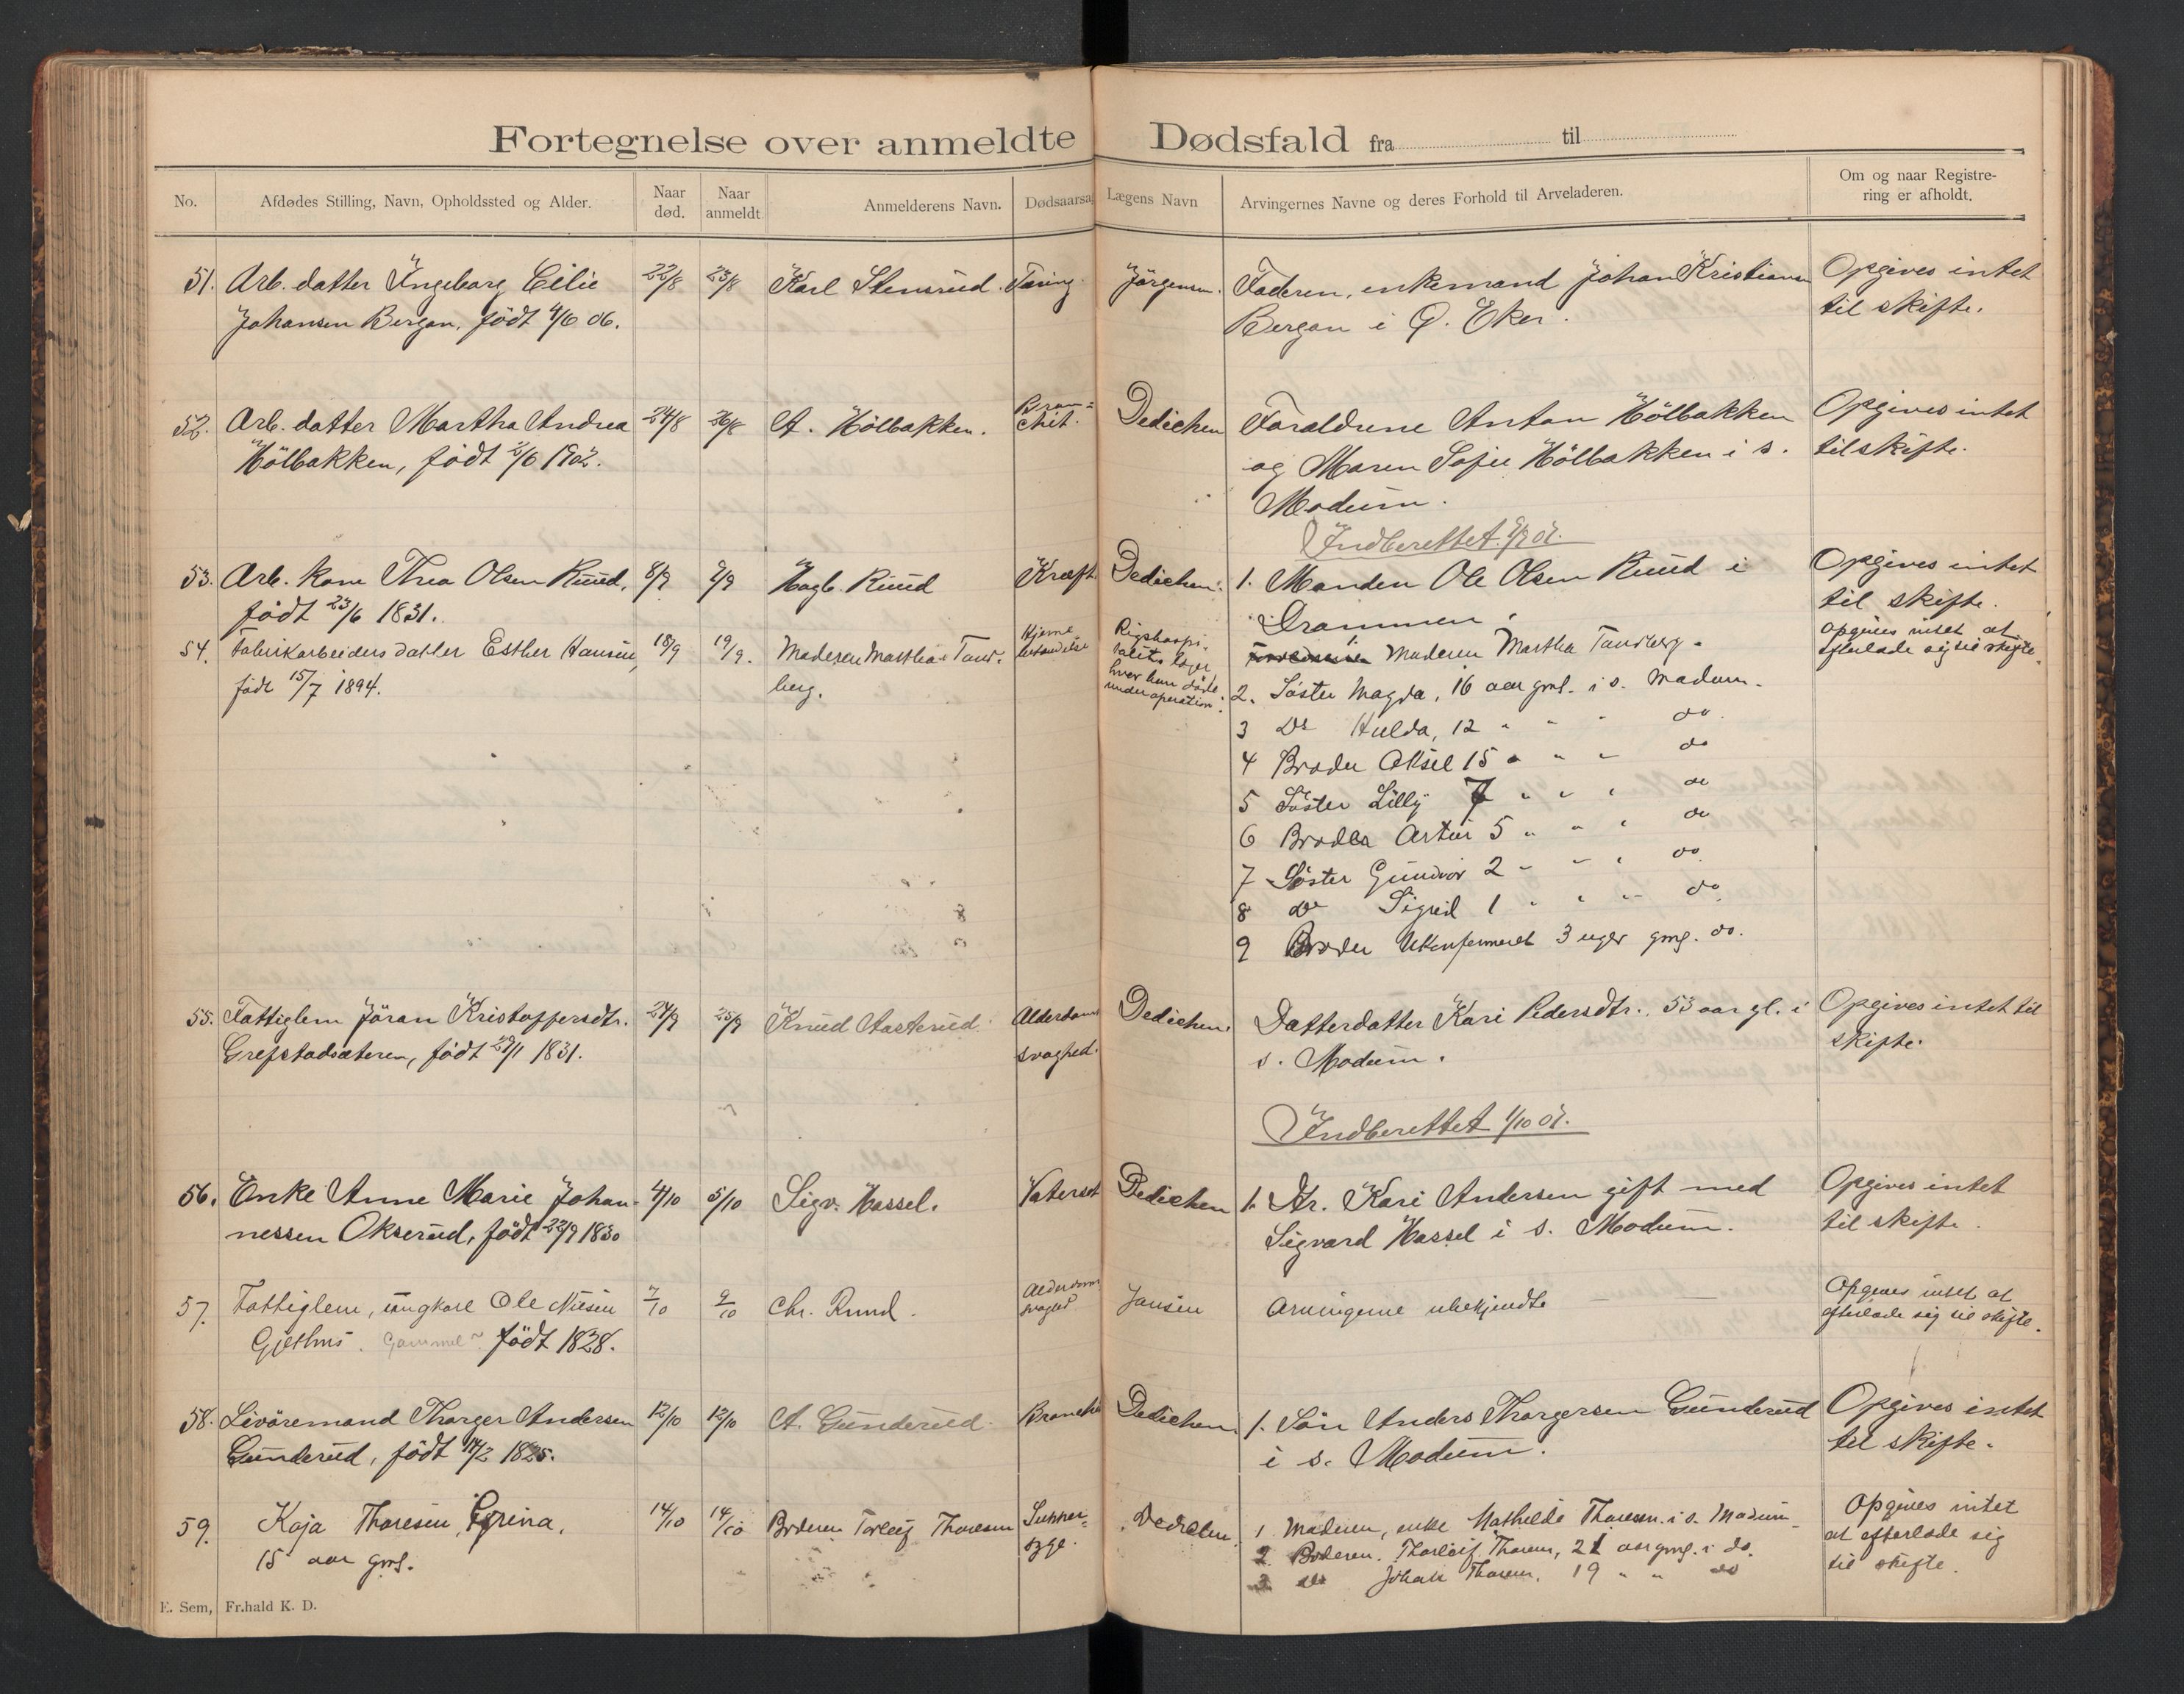 Fortegnelse over anmeldte Dødsfald fra til
No. Afdødes Stilling, Navn, Opholdssted og Alder. Naar død. Naar anmeldt. Anmelderens Navn. Dødsaarsag Lægens Navn Arvingernes Navne og deres Forhold til Arveladeren. Om og naar Registrering er afholdt.
51. Arb. datter Ingeborg Cilie 22/8 23/8 Karl Stensrud. Tæring. Jörgensen. Faderen, enkemand Johan Kristiansen Opgives intet
Johansen Bergan, födt 4/6 06. Bergan i Ø. Eker. til skifte.
52. Arb. datter Martha Andrea 24/8 26/8 A. Hölbakken. Bron=chit. Dedichen Forældrene Anton Hölbakken Opgives intet
Hölbakken, födt 2/6 1902. og Maren Sofie Hölbakken i s. til skifte.
Modum.
Indberettet 2/9 07.
53. Arb. kone Thea Olsen Ruud, 8/9 9/9 Hagb. Ruud Kræft. Dedichen. 1. Manden Ole Olsen Ruud i Opgives intet
födt 23/6 1831. Drammen. til skifte.
54. Fabrikarbeiders datter Esther Hansen, 18/9 19/9. Moderen Martha Tand- Hjerne Rigshospi- 1. Moderen Martha Tandberg. Opgives intet at
födt 15/7 1894. berg. betændelse talets læger efterlade sig til skifte.
hvor hun döde
under operation.
2. Söster Magda, 16 aar gml. i s. Modum.
3 Do Hulda, 12 " " " do.
4 Broder Aksel 15 " " " do
5 Söster Lilly 7 " " " do
6 Broder Artur 5 " " " do
7 Söster Gundvor 2 " " " do
8 do Sigrid 1 " " " do.
9 Broder Ukonfirmeret 3 uger gml. do.
55. Fattiglem Jöran Kristoffersdtr. 24/9 25/9 Knud Aasterud. Alderdoms Dedichen. Datterdatter Kari Pedersdtr., 53 aar gl. i Opgives intet til
Grefstadsæteren, födt 29/1 1831. svaghed. s. Modum. skifte.
Indberettet 1/10 07.
56. Enke Anne Marie Johan- 4/10 5/10 Sigv. Hassel. Vatersot Dedichen 1. Dr. Kari Andersen gift med Opgives intet
nessen Okserud, födt 22/9 1830 Sigvard Hassel i s. Modum. til skifte.
57. Fattiglem, ungkarl Ole Nilsen 7/10 9/10 Chr. Ruud. Alderdoms Jansen Arvingerne ubekjendte Opgives intet at
Gjethus. Gammel födt 1828. svaghed efterlade sig til skifte.
58. Livöremand Thorger Andersen 12/10 12/10 A. Gunderud. Bronchit Dedichen. 1. Sön Anders Thorgersen Gunderud Opgives intet
Gunderud, födt 14/2 1825. i s. Modum. til skifte.
59. Kaja Thoresen, Grina, 14/10 14/10 Broderen Torleif Thoresen Sukker- Dedichen. 1 Moderen, enke Mathilde Thoresen i s. Modum Opgives intet
15 aar gml. syge. 2. Broderen. Thorleif Thoresen, 21 aar gml. i do. at efterlade sig
3 do Johan Thoresen, 19 " " do til skifte.
E. Sem, Fr.hald K. D.